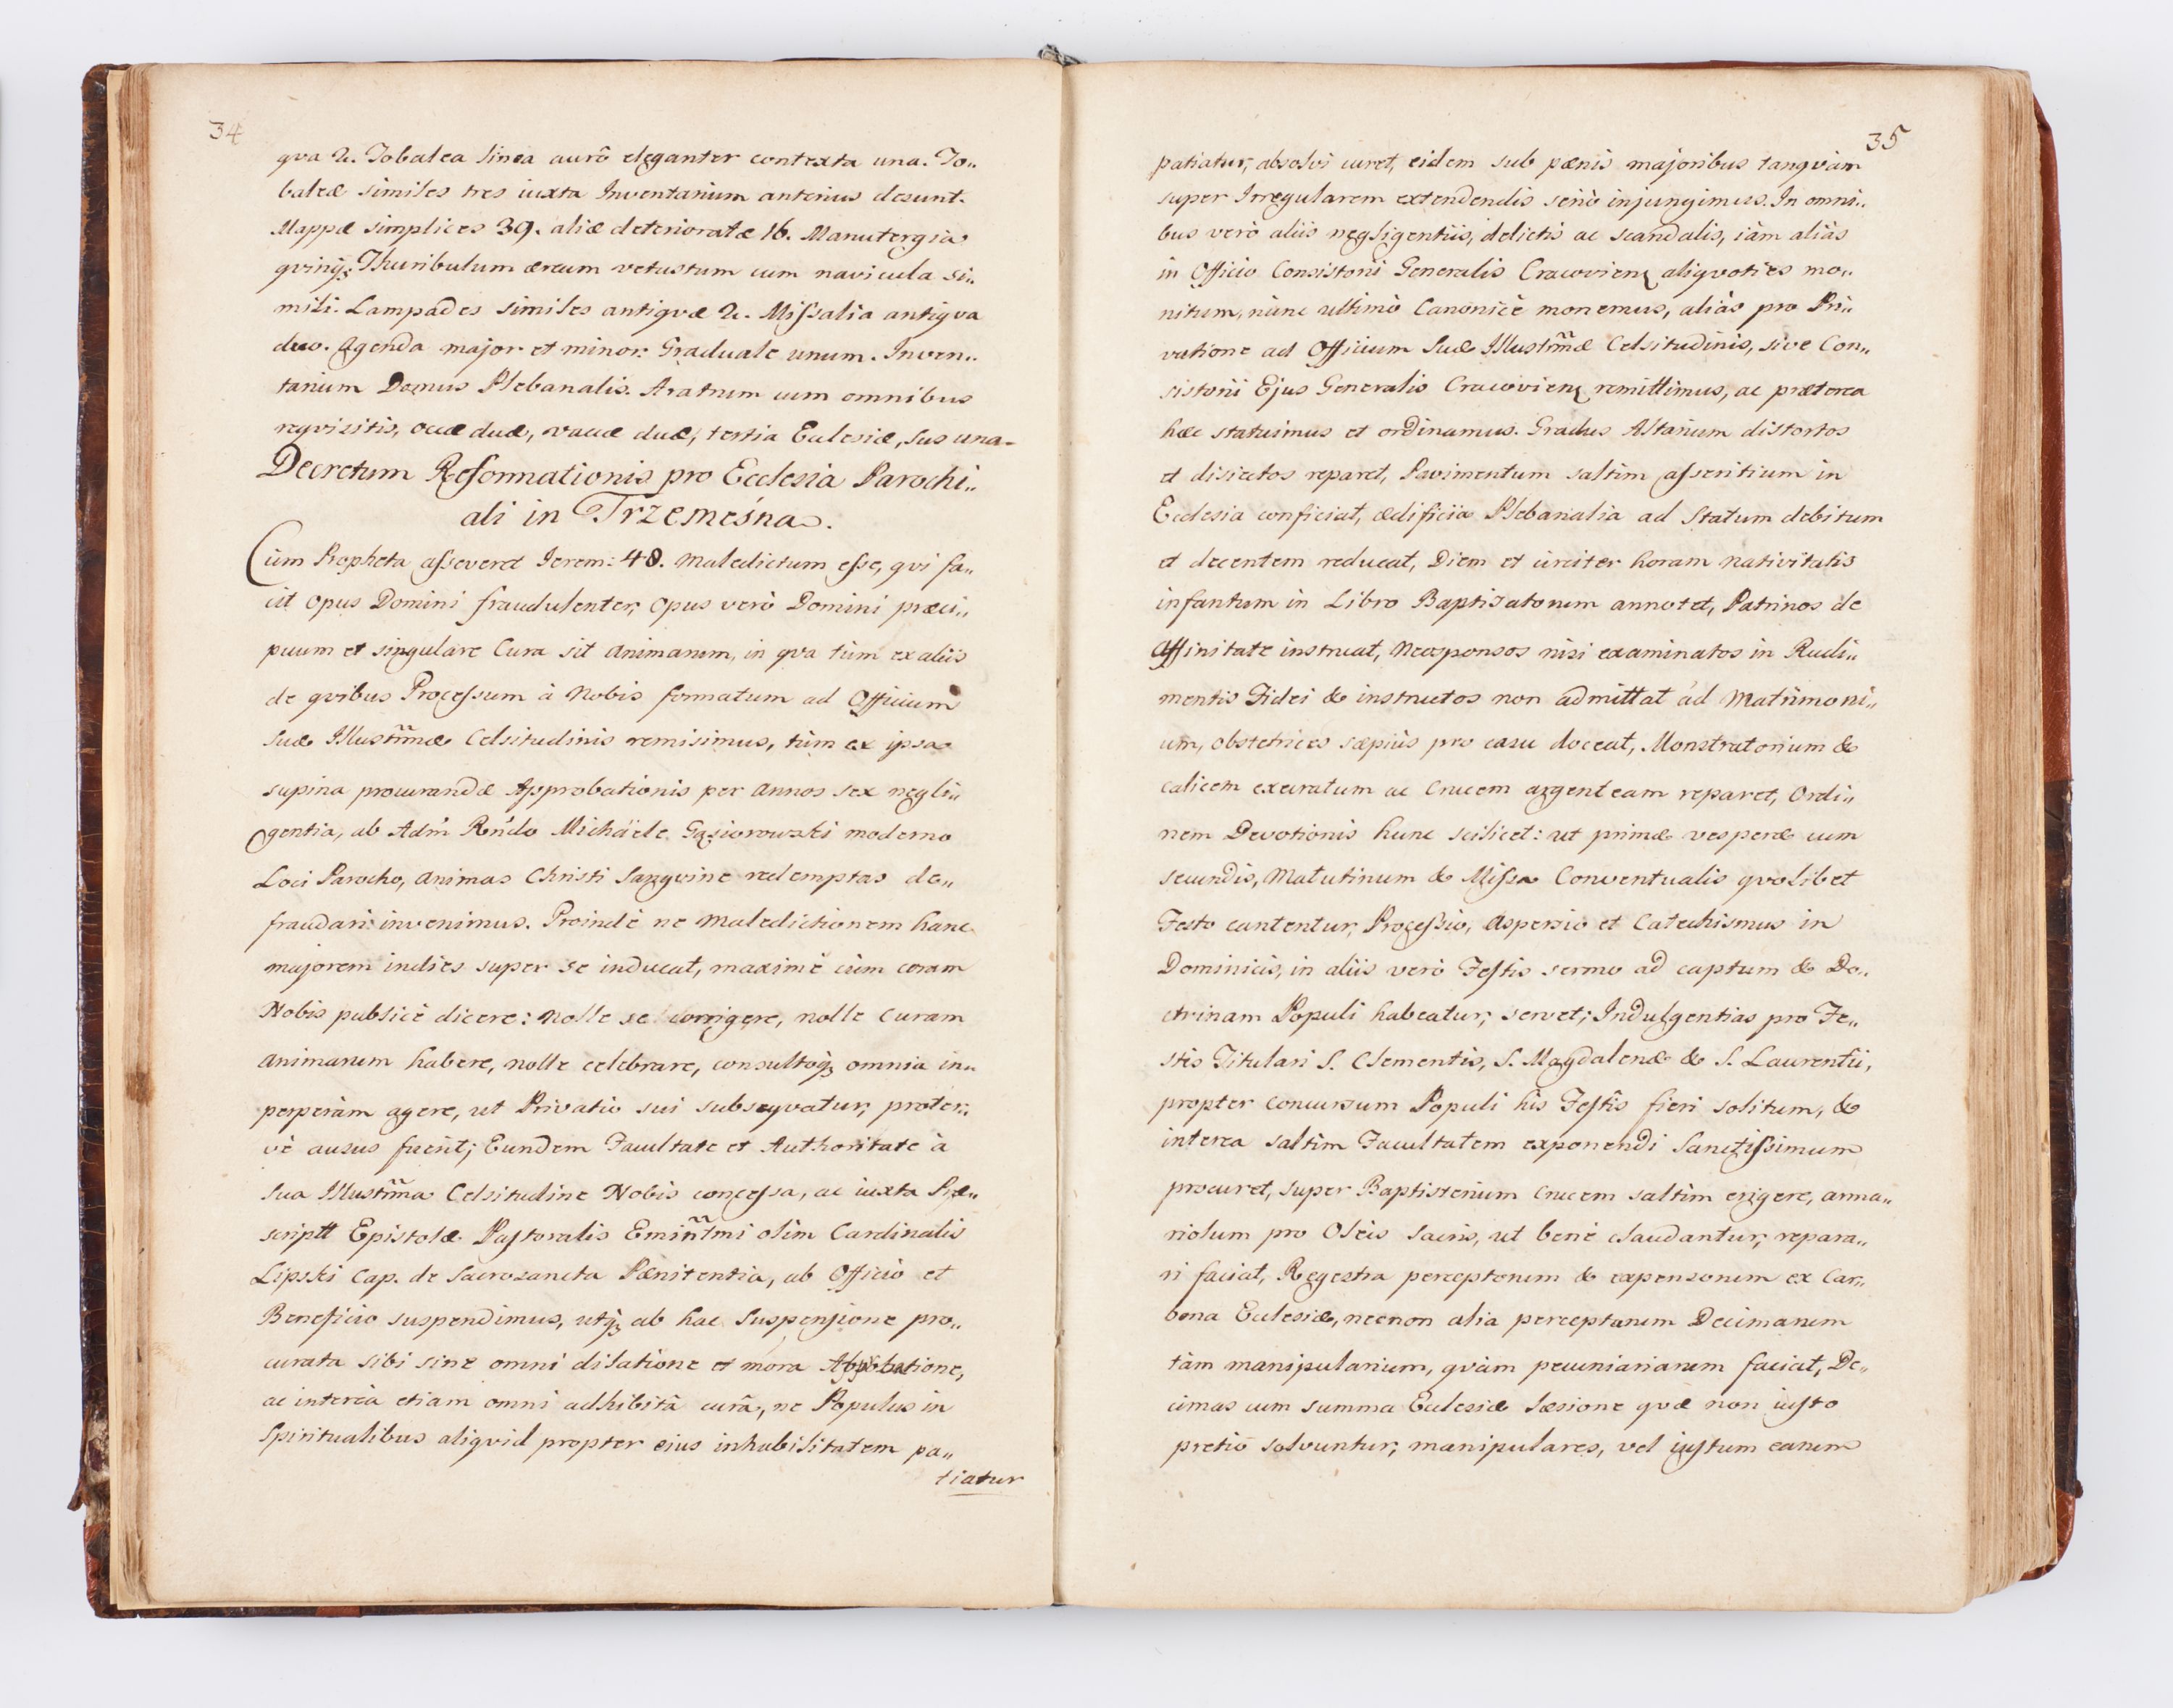 34
qva 2. Tobalea linea aurô eleganter contexta una. To„
baleæ similes tres iuxta Inventarium anterius desunt.
Mappæ simplices 39. aliæ deterioratæ 16. Manutergia
qvinq; Thuribulum æreum vetustum cum navicula si„
mili. Lampades similes antiqvæ 2. Missalia antiqva
duo. Agenda major et minor. Graduale unum. Inven„
tarium Domus Plebanalis. Aratrum cum omnibus
reqvisitis, duæ, vaccæ duæ, tertia Ecclesiæ, sus una.
Decretum Reformationis pro Ecclesia Parochi„
ali in Trzemeśna.
Cùm Propheta asseveret Jerem: 48. Maledictum esse, qvi fa„
cit Opus Domini fraudulenter, Opus verò Domini præci„
puum et singulare Cura sit Animarum, in qva tùm ex aliis
de qvibus Processum à Nobis formatum ad Officium
Suæ Illustm̃æ Celsitudinis remisimus, tùm ex ipsa
supina procurandæ Approbationis per Annos sex negli„
gentia, ab Adm̃ Rńdo Michäele Gąsiorowski moderno
Loci Parocho, Animas Christi Sangvine redemptas de„
fraudari invenimus. Proindè ne Maledictionem hanc
majorem indies super se inducat, maximè cùm coram
Nobis publicè dicere: Nolle se corrigere, nolle Curam
Animarum habere, nolle celebrare, consultoq; omnia in„
perperàm agere, ut Privatio sui subseqvatur, proter„
vè ausus fuerit; Eundem Facultate et Authoritate à
Sua Illustm̃a Celsitudine Nobis concessa, ac iuxta Præ„
scriptt Epistolæ Pastoralis Emiñtmi olim Cardinalis
Lipski Cap. de Sacrosancta Pænitentia, ab Officio et
Beneficio suspendimus, utq; ab hac Suspensione pro„
curata sibi sine omni dilatione et mora Approbatione,
ac intereà etiam omni adhibitâ curâ, ne Populus in
Spiritualibus aliqvid propter eius inhabilitatem pa„
tiatur
35
patiatur, absolvi curet, eidem sub pænis majoribus tanqvàm
super Irregularem extendendis seriò injungimus. In omni„
bus verò aliis negligentiis, delictis ac scandalis, iàm aliàs
in Officio Consistorii Generalis Cracovienȝ aliqvoties mo„
nitum, nùnc ultimò Canonicè monemus, aliàs pro Pri„
vatione ad Officium Suæ Illustm̃æ Celsitudinis, sive Con„
sistorii Ejus Generalis Cracovienȝ remittimus, ac præterea
hæc statuimus et ordinamus. Gradus Altarium distortos
et disiectos reparet, Pavimentum saltim asseritium in
Ecclesia conficiat, ædificia Plebanalia ad Statum debitum
et decentem reducat, Diem et circiter horam Nativitatis
infantum in Libro Baptisatorum annotet, Patrinos de
Affinitate instruat, Neosponsos nisi examinatos in Rudi„
mentis Fidei & instructos non admittat ad Matrimoni„
um, obstetrices sæpiùs pro casu doceat, Monstratorium &
calicem execratum ac Crucem argenteam reparet, Ordi„
nem Devotionis hunc scilicet: ut primæ vesperæ cum
secundis, Matutinum & Missa Conventualis qvolibet
Festo cantentur, Processio, Aspersio et Catechismus in
Dominicis, in aliis verò Festis sermo ad captum & Do„
ctrinam Populi habeatur, servet; Indulgentias pro Fe„
stis Titulari S. Clementis, S. Magdalenæ & S. Laurentii,
propter concursum Populi his Festis fieri solitum, &
interea saltim Facultatem exponendi Sanctissimum
procuret, super Baptisterium Crucem saltim erigere, arma„
riolum pro Oleis Sacris, ut benè claudantur, repara„
ri faciat, Regestra perceptorum & expensorum ex Car„
bona Ecclesiæ, necnon alia perceptarum Decimarum
tàm manipularium, qvàm pecuniariarum faciat, De„
cimas cum summa Ecclesiæ læsione qvæ non iusto
pretiô solvuntur, manipulares, vel iustum earum